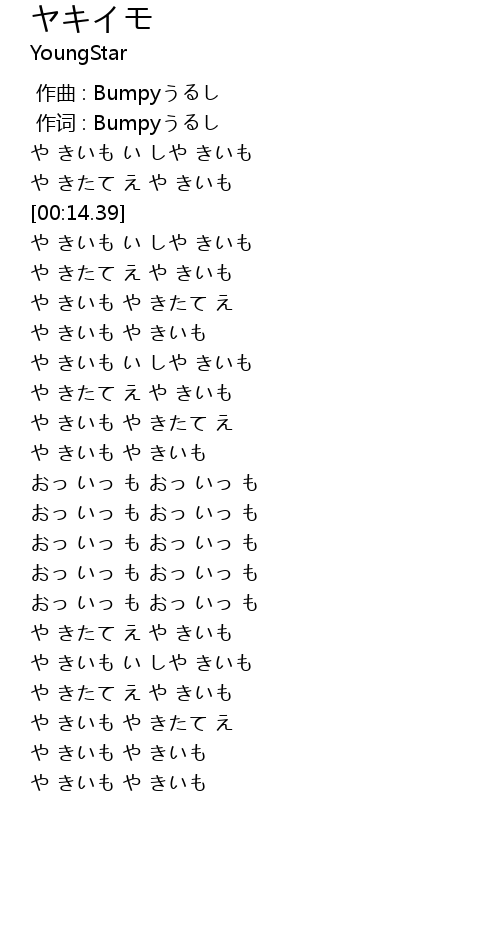 ヤキイモ
YoungStar
作曲 : Bumpyうるし
作词 : Bumpyうるし
や きいも い しや きいも
や きたて え や きいも
[00:14.39]
や きいも い しや きいも
や きたて え や きいも
や きいも や きたて え
や きいも や きいも
や きいも い しや きいも
や きたて え や きいも
や きいも や きたて え
や きいも や きいも
おっ いっ も おっ いっ も
おっ いっ も おっ いっ も
おっ いっ も おっ いっ も
おっ いっ も おっ いっ も
おっ いっ も おっ いっ も
や きたて え や きいも
や きいも い しや きいも
や きたて え や きいも
や きいも や きたて え
や きいも や きいも
や きいも や きいも